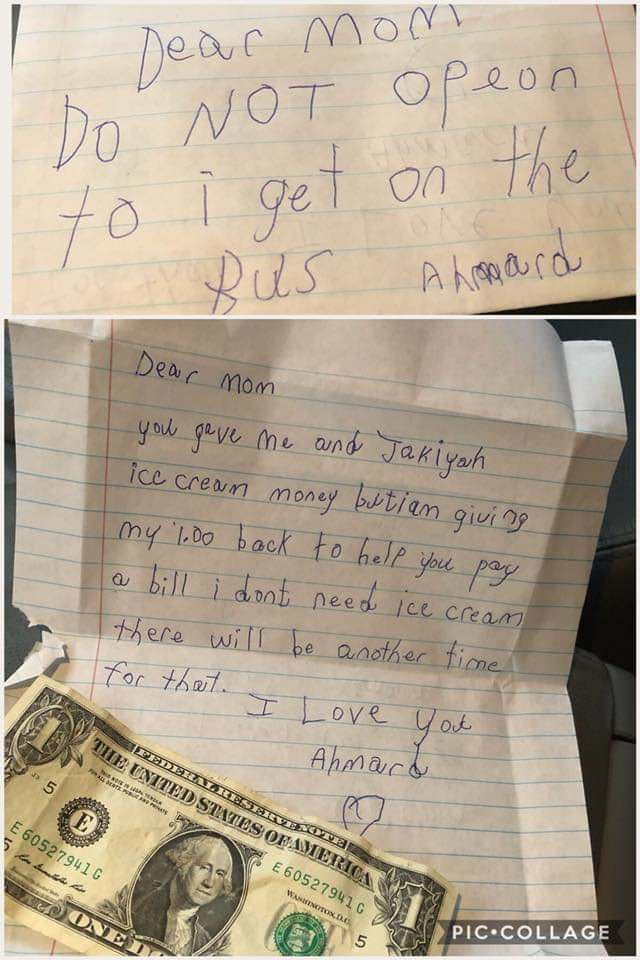 Dear Mom
Do NOT opeon
to i get on the
Bus Ahmard
Dear mom
you gave me and Jakiyah
ice cream money butiam giving
my 1.00 back to help you pay
a bill i dont need ice cream
there will be another time
for that.
I Love you
Ahmard
FEDERAL RESERVE NOTE
THE UNITED STATES OF AMERICA
THIS NOTE IS LEGAL TENDER
FOR ALL DEBTS, PUBLIC AND PRIVATE
5
E
E 60527941 G
E 60527941 G
WASHINGTON, D.C.
5
5
1
1
ONE
PIC•COLLAGE